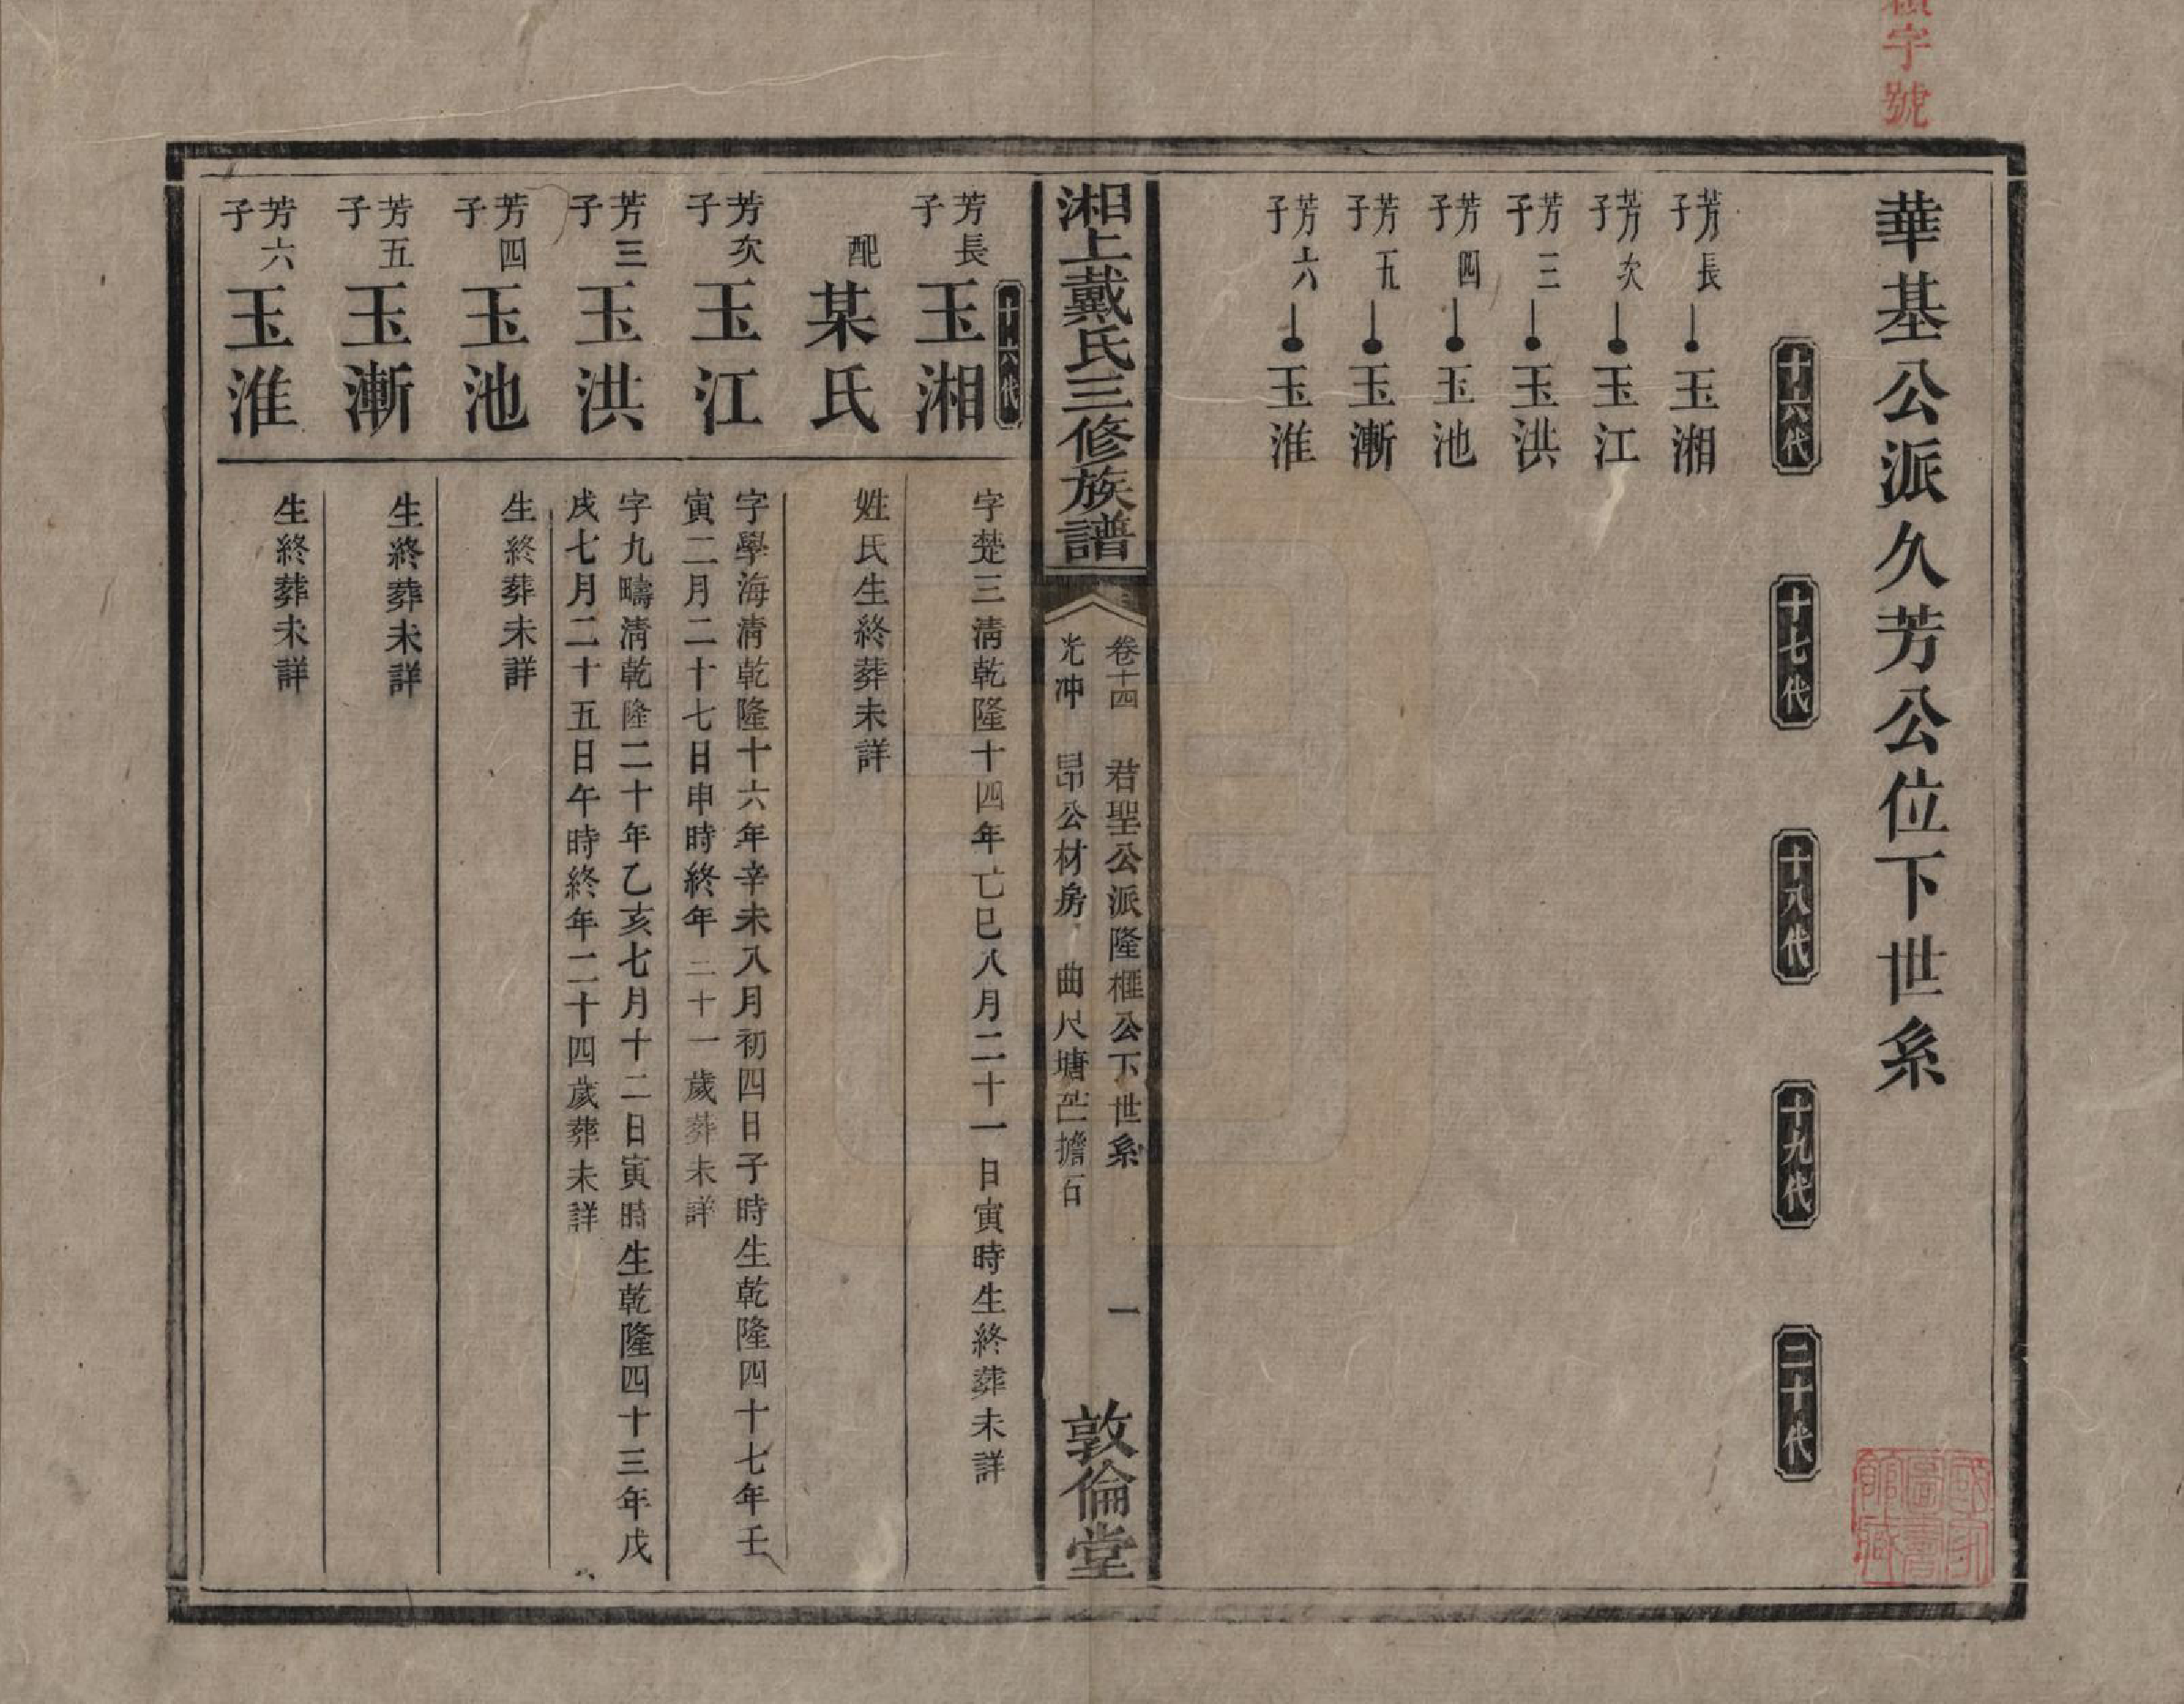 字號
華基公派久芳公位下世系
十六代
十七代
十八代
十九代
二十代
芳長子 玉湘
芳次子 玉江
芳三子 玉洪
芳四子 玉池
芳五子 玉漸
芳六子 玉淮
湘上戴氏三修族譜
卷十四 君聖公派隆榧公下世系 一
光冲 昂公材房 曲尺塘 擔石
敦倫堂
十六代
芳長子 玉湘
字楚三清乾隆十四年己巳八月二十一日寅時生終葬未詳
配 某氏
姓氏生終葬未詳
芳次子 玉江
字學海清乾隆十六年辛未八月初四日子時生乾隆四十七年壬
寅二月二十七日申時終年二十一歲葬未詳
芳三子 玉洪
字九疇清乾隆二十年乙亥七月十二日寅時生乾隆四十三年戊
戌七月二十五日午時終年二十四歲葬未詳
芳四子 玉池
生終葬未詳
芳五子 玉漸
生終葬未詳
芳六子 玉淮
生終葬未詳
國家圖書館藏